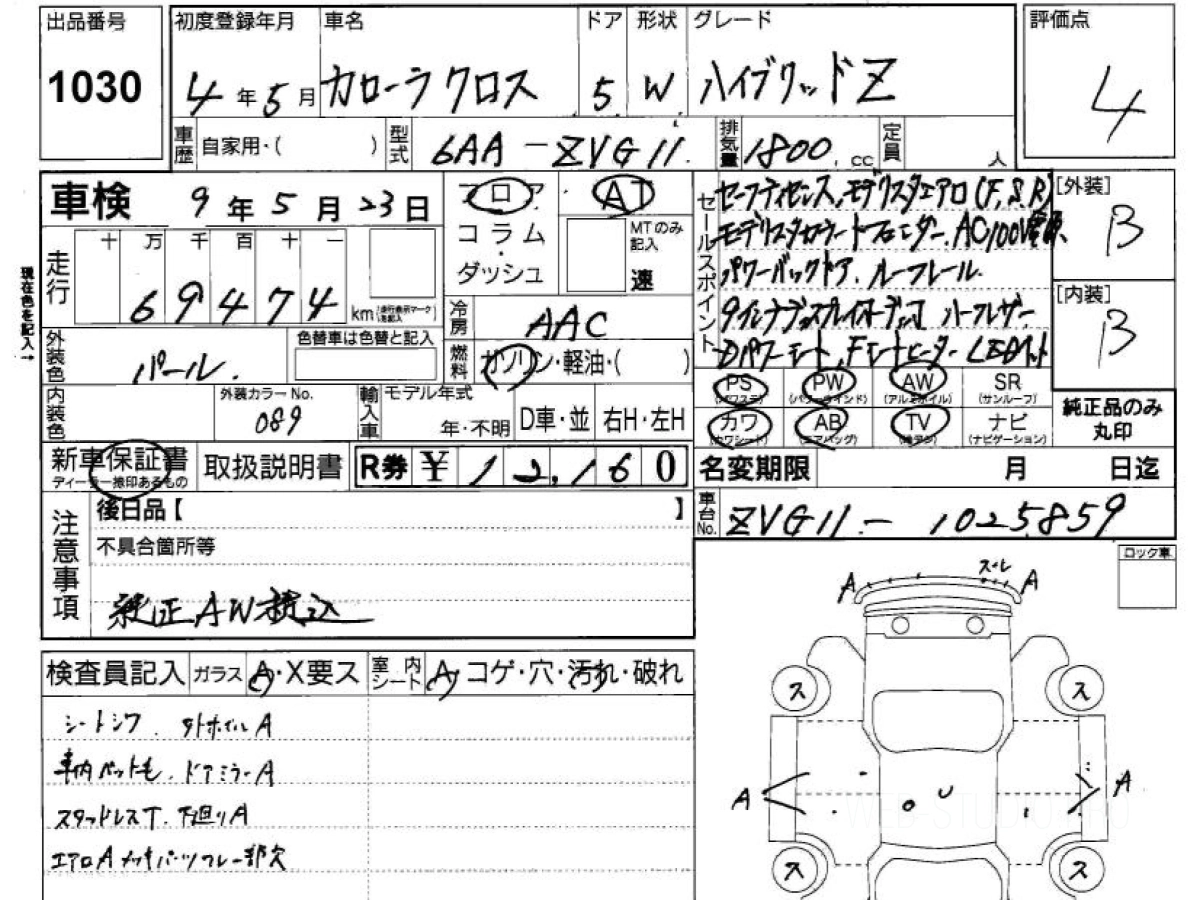 出品番号
1030
初度登録年月
4年5月
車名
カローラクロス
ドア
5
形状
W
グレード
ハイブリッドZ
評価点
4
車歴
自家用・( )
型式
6AA-ZVG11
排気量
1800 cc
定員
人
車検
9年5月23日
フロア・
コラム
・
ダッシュ
AT
MTのみ
記入
速
セールスポイント
セーフティセンス、モデリスタエアロ(F,S,R)
モデリスタカウルードフェンダー、AC100V電源、
パワーバックドア、ルーフレール
9インチディスプレイオーディオ ハーフレザー
DパワーモートFシートヒーター LEDライト
[外装]
B
[内装]
B
現在色を記入→
走行
十 万 千 百 十 一
69474
km
(走行表示マークを記入)
冷房
AAC
燃料
ガソリン・軽油・( )
外装色
パール
色替車は色替と記入
内装色
外装カラーNo.
089
輸入車
モデル年式
年・不明
D車・並
右H・左H
PS
(パワステ)
PW
(パワーウインド)
AW
(アルミホイル)
SR
(サンルーフ)
カワ
(カワシート)
AB
(エアバッグ)
TV
ナビ
(ナビゲーション)
純正品のみ
丸印
新車保証書
ディーラー捺印あるもの
取扱説明書
R券 ¥ 12,160
名変期限
月 日迄
注意事項
後日品【 】
不具合箇所等
純正AW積込
車台No.
ZVG11-1025859
ロック車
スレ
A
A
ス
ス
A
A
ス
ス
検査員記入
ガラス
A・X要ス
室内シート
A・コゲ・穴・汚れ・破れ
シートシワ. 外ホイルA
車内ペット毛. ドアミラーA
スタッドレスT. 下廻りA
エアロAメッキパーツフレー部欠
WEB STUDIO.RU